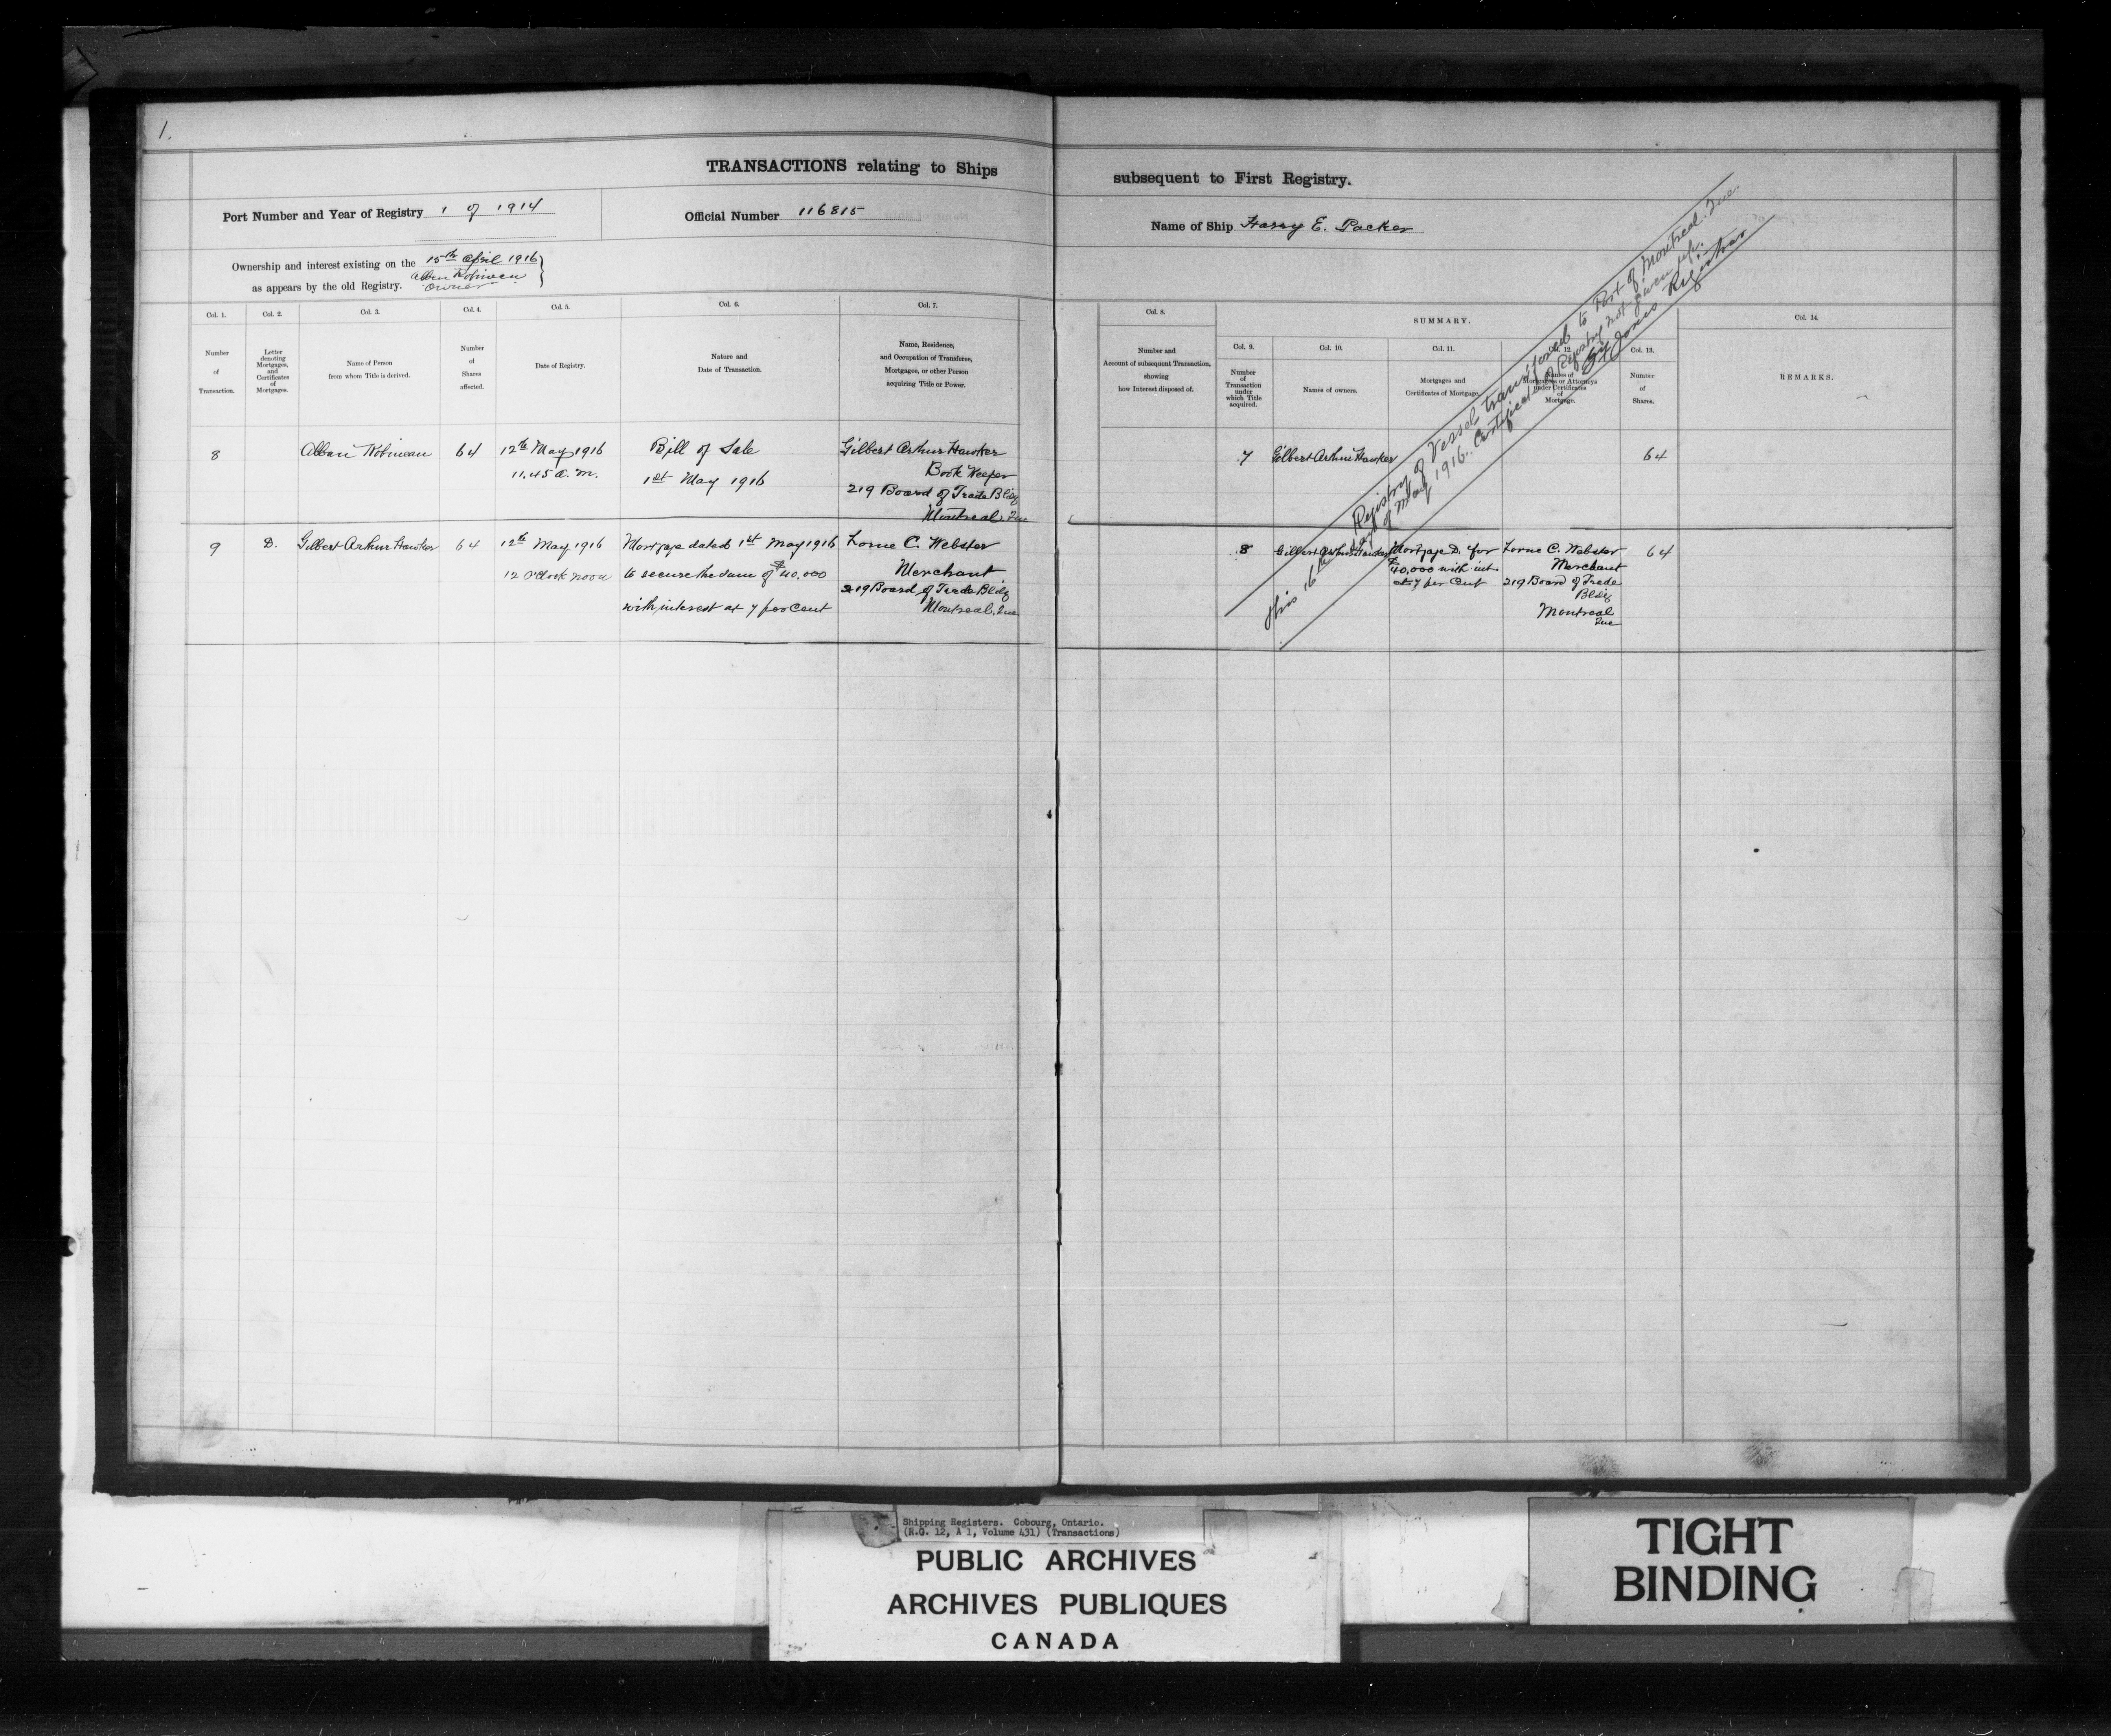 1.
TRANSACTIONS relating to Ships
subsequent to First Registry.
Port Number and Year of Registry 1 of 1914
Official Number 116815
Name of Ship Harry E. Packer
Ownership and interest existing on the 15th April 1916
as appears by the old Registry. Alban Robineau
Owner
Col. 1.
Number
of
Transaction.
Col. 2.
Letter
denoting
Mortgages,
and
Certificates
of
Mortgages.
Col. 3.
Name of Person
from whom Title is derived.
Col. 4.
Number
of
Shares
affected.
Col. 5.
Date of Registry.
Col. 6.
Nature and
Date of Transaction.
Col. 7.
Name, Residence,
and Occupation of Transferee,
Mortgagee, or other Person
acquiring Title or Power.
Col. 8.
Number and
Account of subsequent Transaction,
showing
how Interest disposed of.
SUMMARY.
Col. 9.
Number
of
Transaction
under
which Title
acquired.
Col. 10.
Names of owners.
Col. 11.
Mortgages and
Certificates of Mortgage.
Col. 12.
Names of
Mortgagees or Attorneys
under Certificates
of
Mortgage.
Col. 13.
Number
of
Shares.
Col. 14.
REMARKS.
8
Alban Robineau
64
12th May 1916
11.45 a.m.
Bill of Sale
1st May 1916
Gilbert Arthur Hawker
Book Keeper
219 Board of Trade Bldg
Montreal. Que
7
Gilbert Arthur Hawker
64
9
D.
Gilbert Arthur Hawker
64
12th May 1916
12 O'Clock noon
Mortgage dated 1st May 1916
to secure the sum of $40,000
with interest at 7 per cent
Lorne C. Webster
Merchant
219 Board of Trade Bldg
Montreal. Que
8
Gilbert Arthur Hawker
Mortgage D. for
$40,000 with int
at 7 per cent
Lorne C. Webster
Merchant
219 Board of Trade
Bldg
Montreal
Que
64
Registry of Vessel transferred to Port of Montreal. Que.
this 16th day of May 1916. Certificate of Registry not given up.
Jones Registrar
Shipping Registers. Cobourg, Ontario.
(R.G. 12, A 1, Volume 431) (Transactions)
PUBLIC ARCHIVES
ARCHIVES PUBLIQUES
CANADA
TIGHT
BINDING